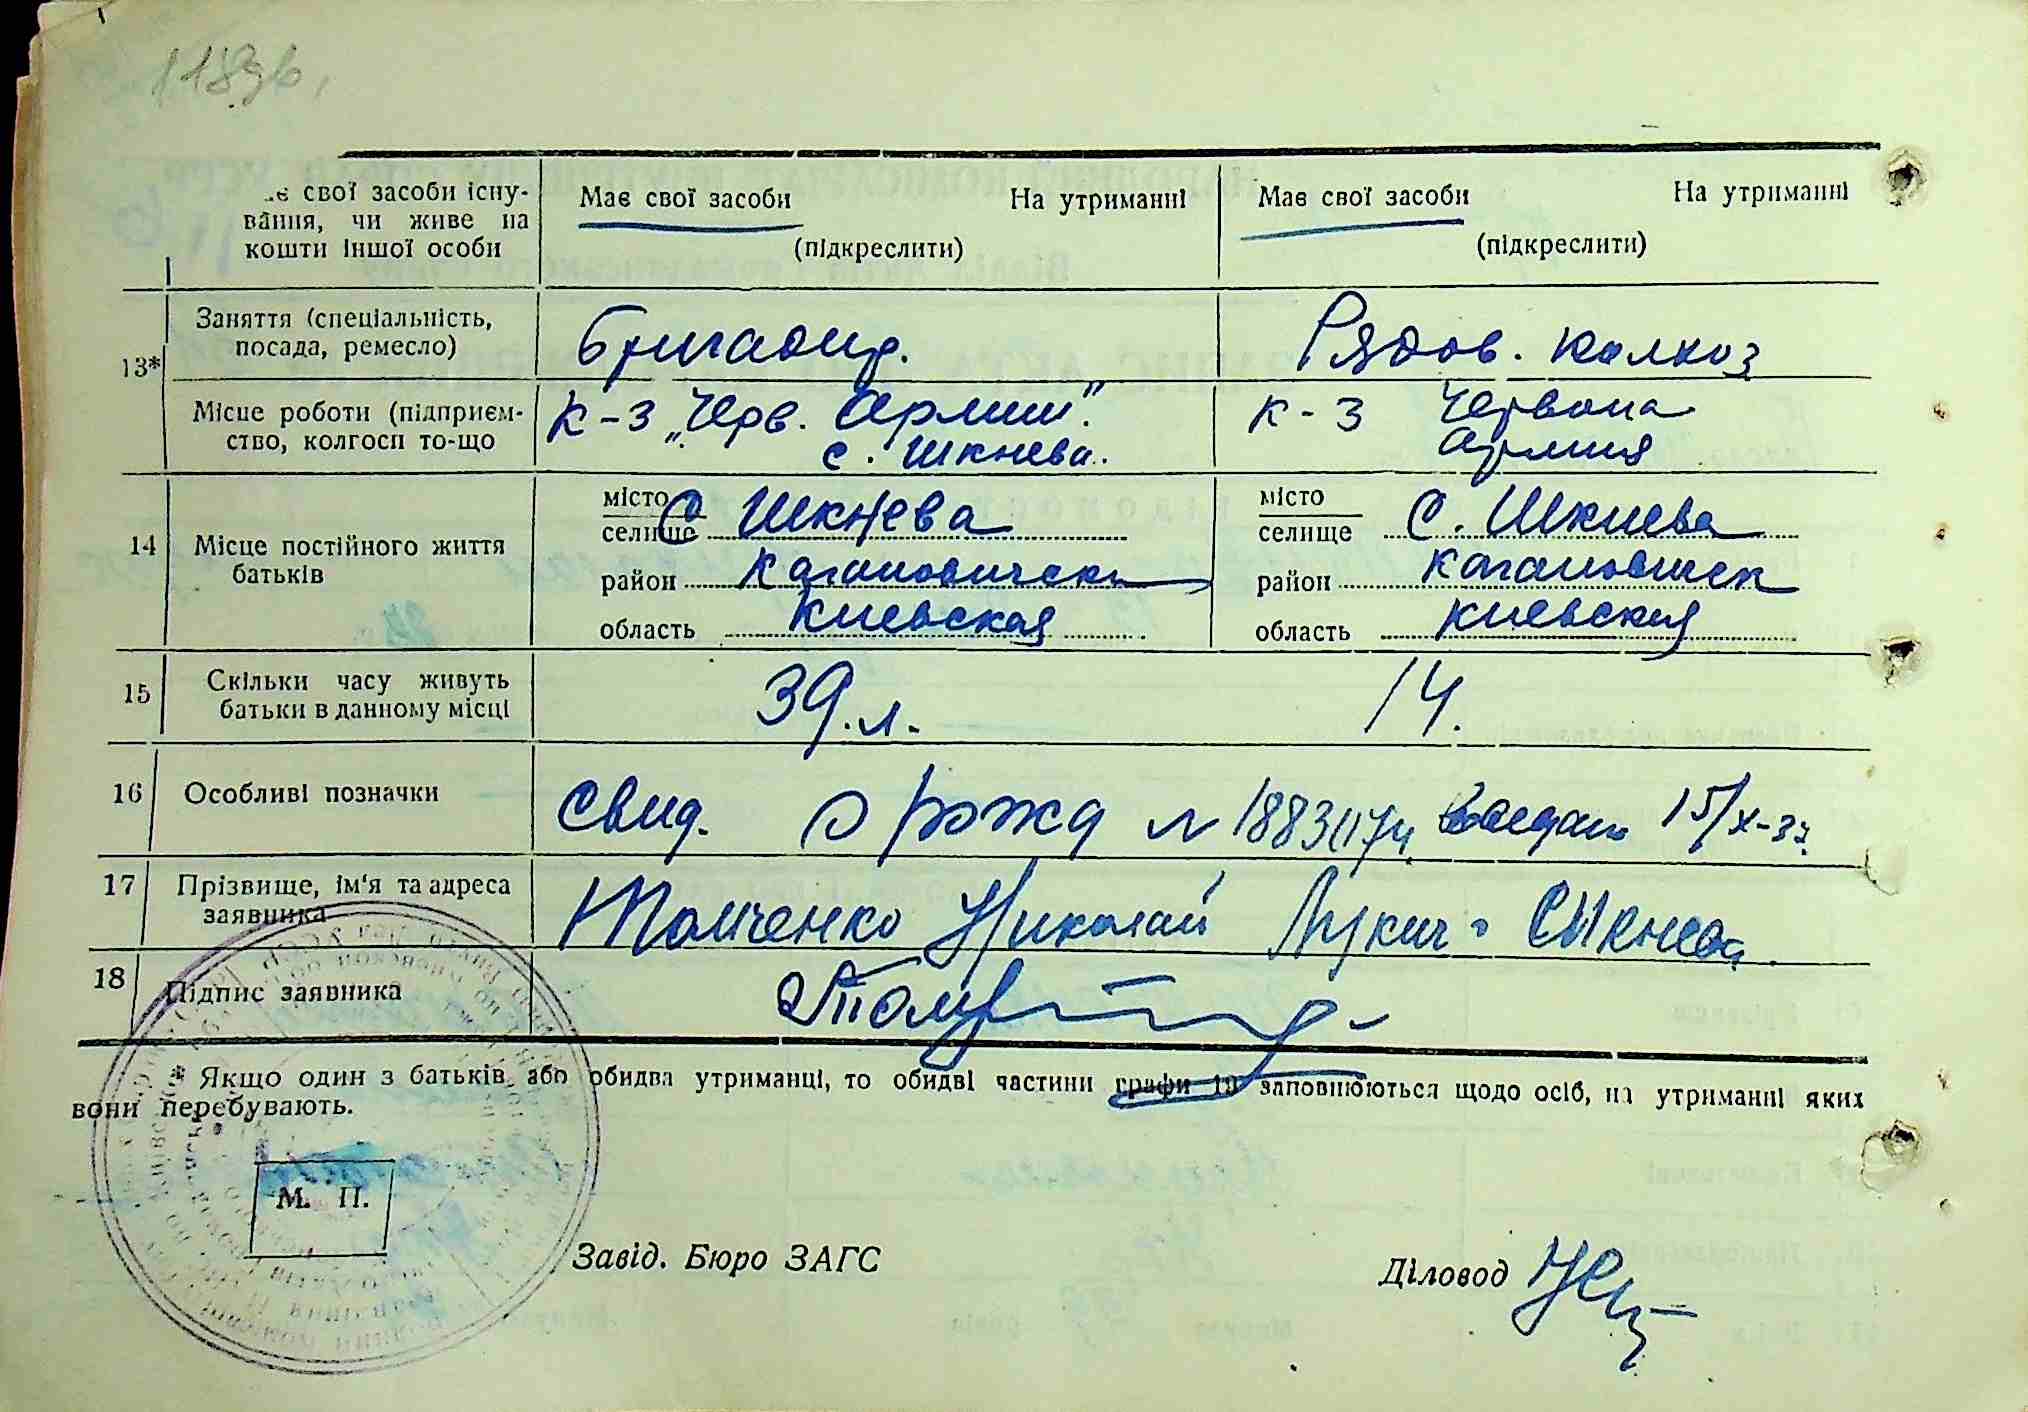 1183 б,
є свої засоби існу-
вання, чи живе на
кошти іншої особи
Має свої засоби На утриманні
(підкреслити)
Має свої засоби На утриманні
(підкреслити)
13*
Заняття (спеціальність,
посада, ремесло)
Бригадир.
Рядов. колхоз
Місце роботи (підприєм-
ство, колгосп то-що
К-з „Черв. Армии".
с. Шкнева.
К-з Червона
Армия
14
Місце постійного життя
батьків
місто
селище С Шкнева
район Кагановически
область Киевская
місто
селище С. Шкнева
район Кагановическ
область Киевская
15
Скільки часу живуть
батьки в данному місці
39.л.
14.
16
Особливі позначки
Свид. о рожд N 1883117/4 выдан 15/X-37.
17
Прізвище, ім'я та адреса
заявника
Толченко Николай Лукич - С Шкнева
18
Підпис заявника
* Якщо один з батьків, або обидва утриманці, то обидві частини графи 13 заповнюються щодо осіб, на утриманні яких
вони перебувають.
М. П.
Завід. Бюро ЗАГС
Діловод